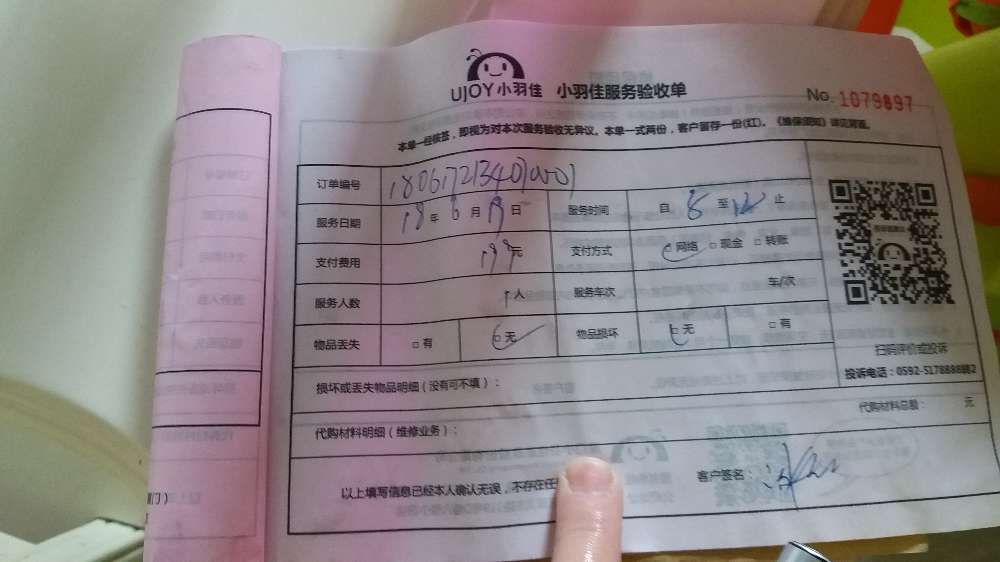 UJOY小羽佳 小羽佳服务验收单
No. 1079897
本单一经核签，即视为对本次服务验收无异议。本单一式两份，客户留存一份(红)。《维保须知》详见背面。
订单编号
服务日期 18 年 6 月 19 日 服务时间 自 8 至 12 止
支付费用 199 元 支付方式 网络 □ 现金 □ 转账
服务人数 1 人 服务车次 车/次
物品丢失 □ 有 □ 无 物品损坏 □ 无 □ 有
扫码评价或投诉
损坏或丢失物品明细（没有可不填）：
投诉电话：0592-5178888转2
代购材料总额： 元
代购材料明细（维修业务）：
客户签名：
以上填写信息已经本人确认无误，不存在任